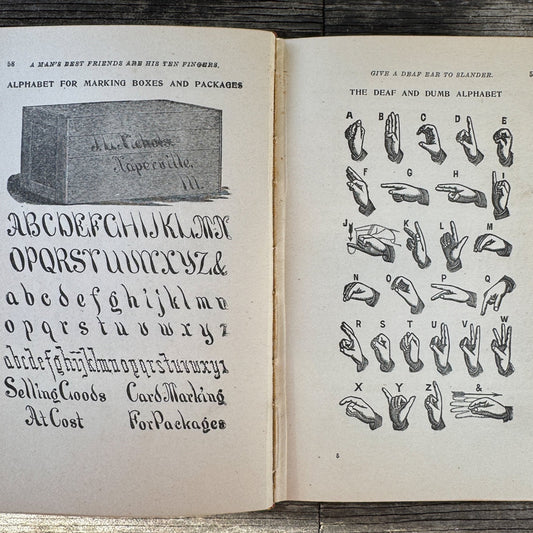 58 A MAN'S BEST FRIENDS ARE HIS TEN FINGERS.
ALPHABET FOR MARKING BOXES AND PACKAGES
J.L. Nichols
Naperville,
Ill.
ABCDEFGHIJKLMN
OPQRSTUVWXYZ&
a b c d e f g h i j k l m n
o p q r s t u v w x y z
a b c d e f g h i j k l m n o p q r s t u v w x y z
Selling Goods Card Marking
At Cost For Packages
GIVE A DEAF EAR TO SLANDER. 5
THE DEAF AND DUMB ALPHABET
A B C D E
F G H I
J K L M
N O P Q
R S T U V W
X Y Z &
5